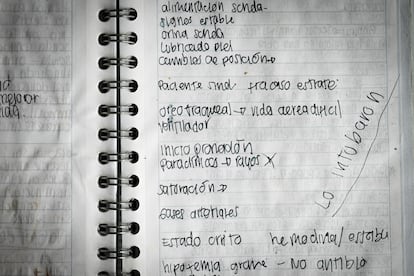 mejor
alimentación sonda-
signos estable
orina sonda
lubricado piel
cambios de posición→
paciente sind. fracaso estrate:
orotraqueal → vida aerea dificil
ventilador
inicio pronación
paraclinicos → rayos X
saturación →
gases arteriales
Estado crito hemodina/estable
hipotemia grave - No antibio
Lo intubaron